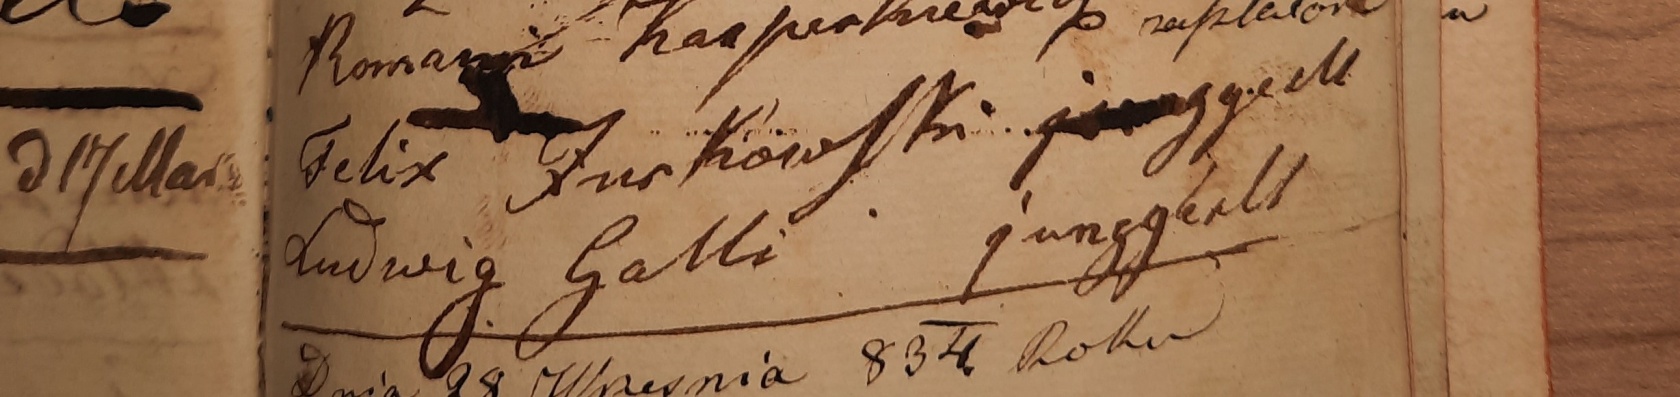 d 17 Mar
Romann Kasperkiewicz zapłacone
Felix Żurkowski junggesell
Ludwig Galli junggesell
Dnia 28 Wrzesnia 834 Roku